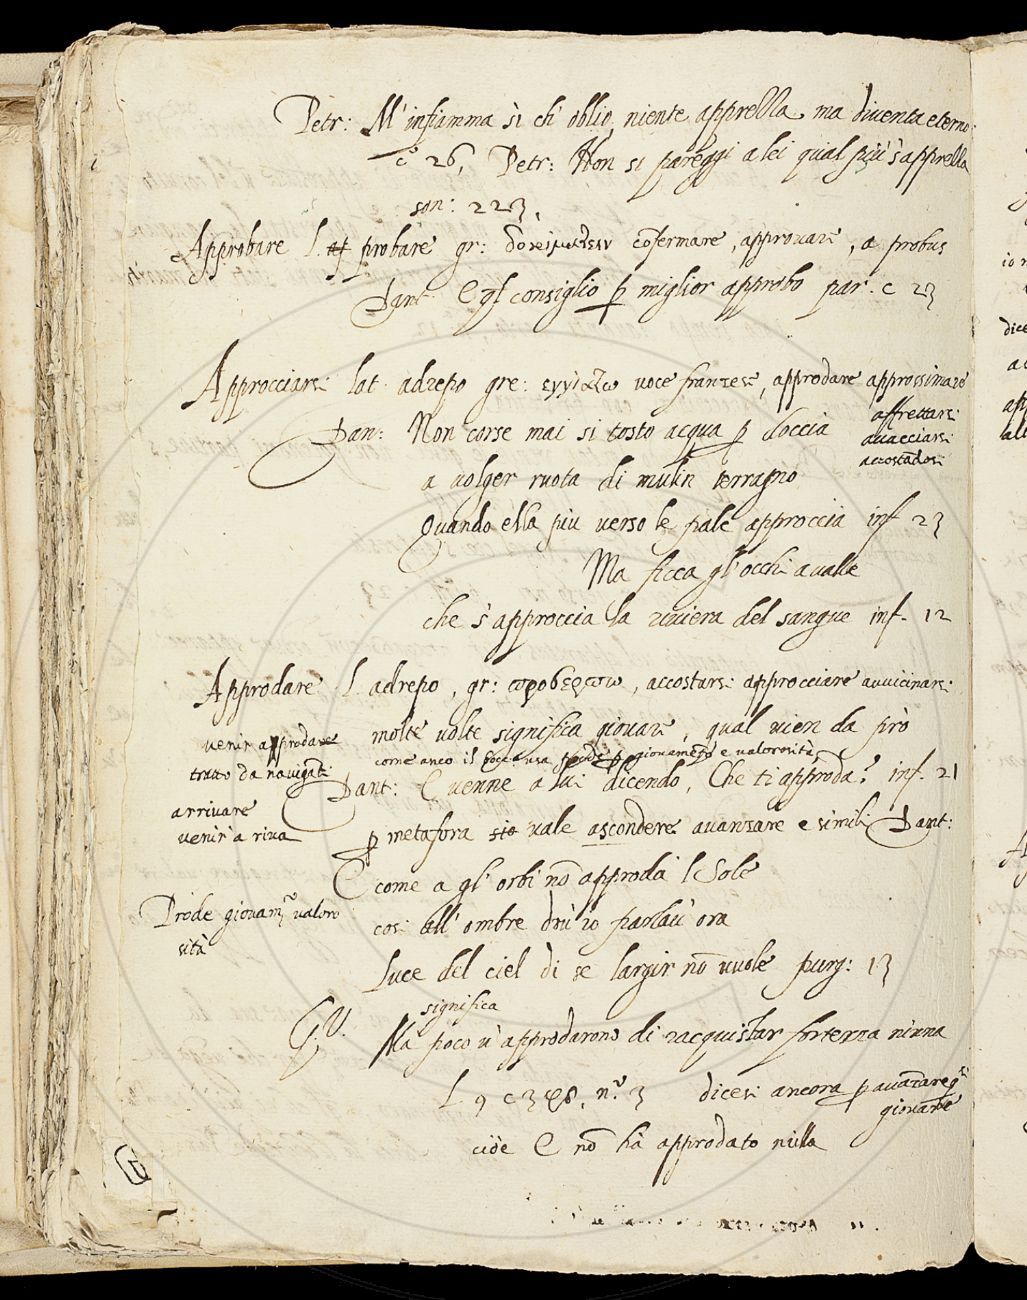 Petr: M'infiamma sì ch' oblio niente apprella, ma diventa eterno:
c.º 26, Petr: Non si pareggi a lei qual più s'apprella
son: 223.
Approbare l. probare gr: cõfermare, approvare, a probus
Dant. E ql consiglio p miglior approbo par. c 23
Approcciare lat. adrepo gre: εγγιαζω voce franzese, approdare approssimare
affrettarsi
avacciarsi
accostãdosi
Dan: Non corse mai si tosto acqua p doccia
a volger ruota di mulin terragno
Quando ella più verso le pale approccia inf 23
Ma ficca gl'occhi a valle
che s'approccia la riviera del sangue inf. 12
Approdare l. adrepo, gr: accostarsi approcciare avvicinarsi
molte volte significa giovare, qual vien da prò
come anco il giovamẽto e valorosità
venir approdare
tratto da navigãti
arrivare
venir a riva
Dant: E venne a lui dicendo, Che ti approda? inf. 21
p metafora vale ascondere avanzare e simili Dant:
E come a gl' orbi nõ approda l Sole
cosi all' ombre dov' io parlav' ora
Luce del ciel di se largir nõ vuole purg: 13
Prode giovamẽ valoro
sità
significa
G.V. Ma poco v' approdarono di racquistar fortezza niuna
L 9 c 3 nº. 3 dicesi ancora p avãzare
giovare
cioè E nõ hà approdato nulla